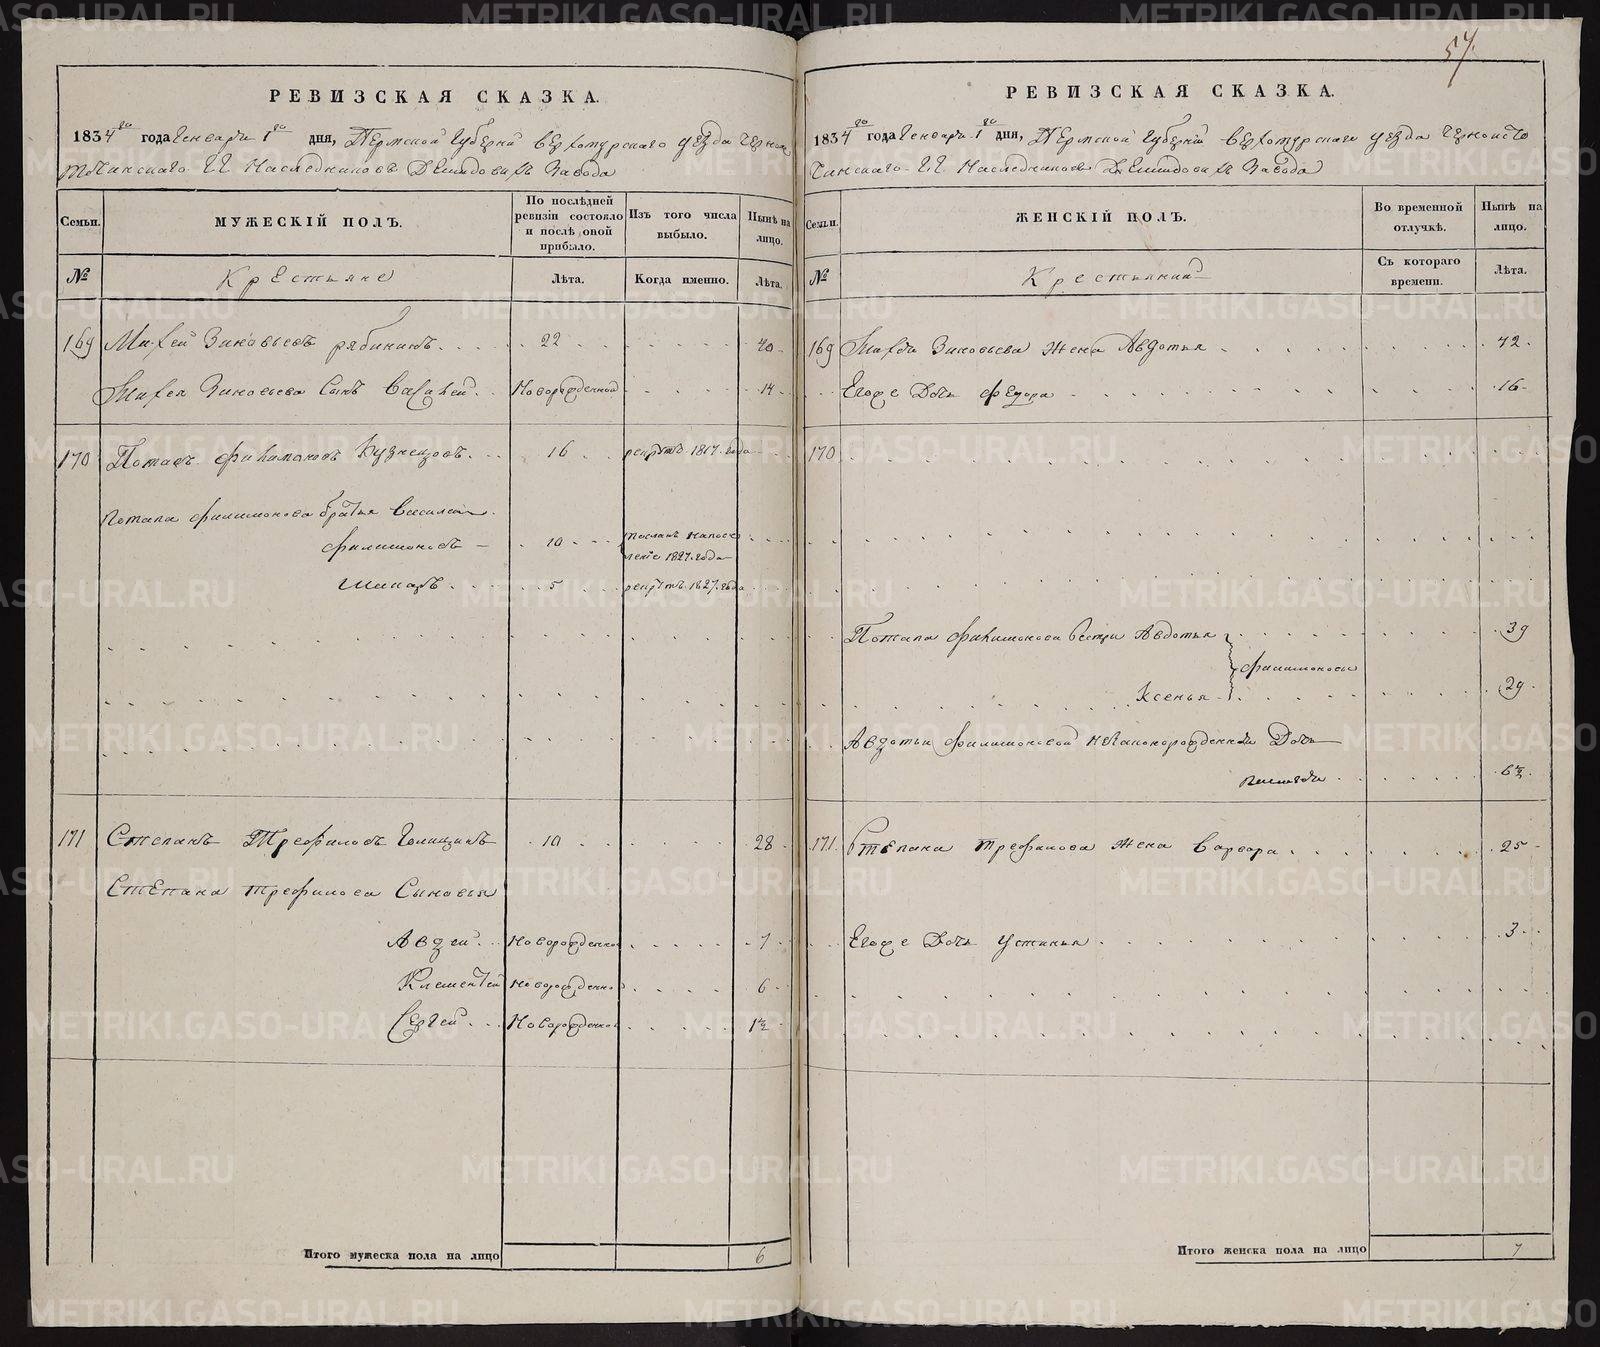 57.
РЕВИЗСКАЯ СКАЗКА.
1834го года Генваря 1го дня, Пермской Губерніи Верхотурскаго уезда Черноис
точинскаго ГГ Наследниковъ Демидовыхъ Завода
Семьи.
МУЖЕСКІЙ ПОЛЪ.
По послѣдней ревизіи состояло и послѣ оной прибыло.
Изъ того числа выбыло.
Нынѣ на лицо.
№
Крестьяне
Лѣта.
Когда именно.
Лѣта.
169 Михей Зиновьевъ рябининъ 22 40
Михея Зиновьева Сынъ Новорожденной 14
170 Потапъ филимоновъ Кузнецовъ 16 рекрутъ 1817 года
Потапа филимонова братья Василей
филимоновъ 10 Посланъ напосе
леніе 1827 года
5 рекрутъ 1827 года
171 Степанъ Трефиловъ 10 28
Степана трефилова Сыновья
Авдей Новорожденной 7
Клементей Новорожденной 6
Сергей Новорожденной 1½
Итого мужеска пола на лицо 6
РЕВИЗСКАЯ СКАЗКА.
1834го года Генваря 1го дня, Пермской Губерніи Верхотурскаго уезда Черноисто
чинскаго ГГ Наследниковъ Демидовыхъ Завода
Семьи.
ЖЕНСКІЙ ПОЛЪ.
Во временной отлучкѣ.
Нынѣ на лицо.
№
Крестьянки
Съ котораго времени.
Лѣта.
169 Михея Зиновьева жена Авдотья 42
Егоже Дочь федора 16
170
Потапа филимонова Сестры Авдотья 39
филимоновы
Ксенья 29
Авдотьи филимоновой незаконорожденная Дочь
6½
171 Степана трефилова жена Варвара 25
Егоже Дочь устинья 3
Итого женска пола на лицо 7
METRIKI.GASO-URAL.RU